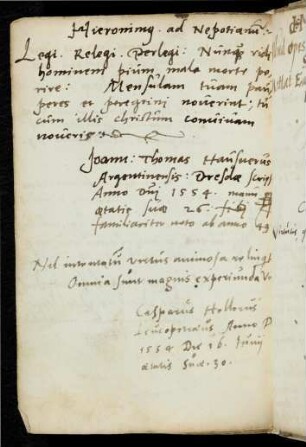 Hieronimg. ad Nepotianū:
Legi. Relegi. Perlegi: Nunqʒ vidi
hominem pium, mala morte pe
rire: Mensulam tuam pau
peres et peregrini noverint; tū
cum illis christum convivam
noveris
Joann: Thomas
Argentinensis: Dresdæ scrip
Anno Dnj 1554. manu
ætatis suæ 26.
familiariter noto ab anno 49
Nil intentatū virtus animosa
Omnia sunt magnis experiunda
Casparus
Anno D
1554 Die 16. Junij
ætatis Suæ. 30.